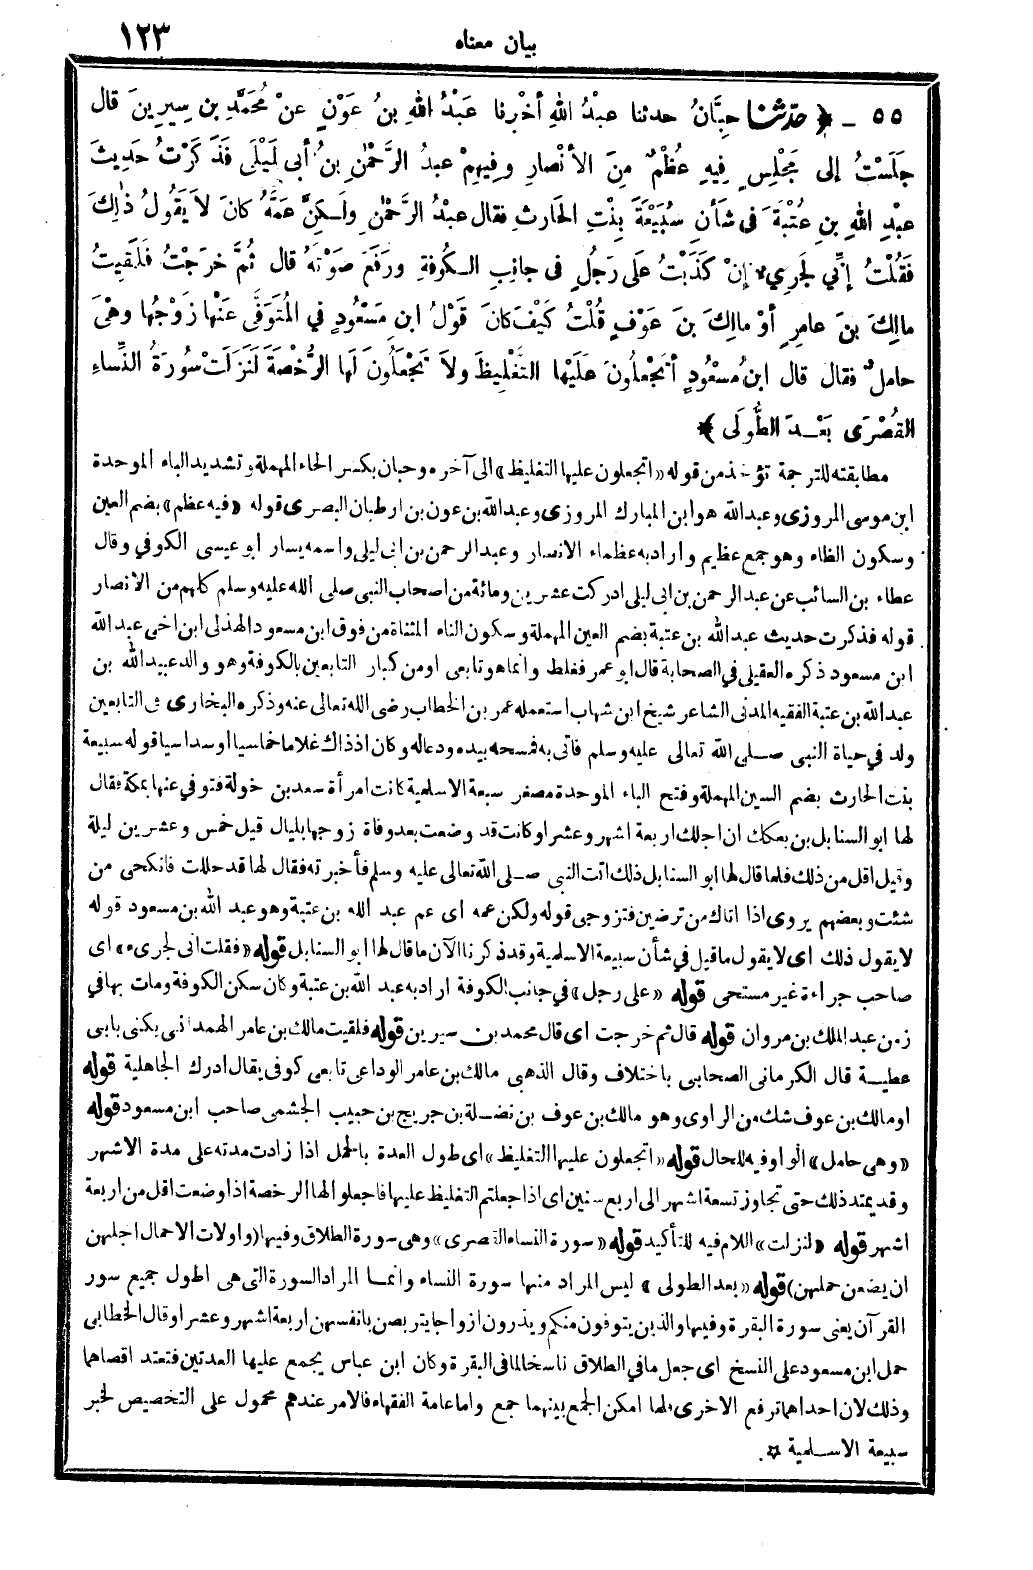 بيان معناه
١٢٣
٥٥ - ﴿ حدّثنا حِبَّانُ حدثنا عبْدُ اللهِ أخْبرنا عَبْدُ اللهِ بنُ عَوْنٍ عنْ مُحَمَّدِ بنِ سِيرِينَ قال
جَلَسْتُ إلى مَجْلِسٍ فِيهِ عُظْمٌ مِنَ الأنْصارِ وفِيهِمْ عبدُ الرَّحْمٰنِ بنُ أبى لَيْلَى فَذَكَرْتُ حَدِيثَ
عبْدِ اللهِ بنِ عُتْبَةَ فى شَأنِ سُبَيْعَةَ بِنْتِ الحَارثِ فقال عبْدُ الرَّحْمٰنِ ولَـكِنَّ عَمَّهُ كانَ لاَ يَقُولُ ذٰلِكَ
فَقُلْتُ إنِّي لَجَرِيءٌ إنْ كَذَبْتُ على رَجُلٍ فى جانِبِ الـكُوفةِ ورَفَعَ صَوْتَهُ قال ثُمَّ خرَجْتُ فَلَقِيتُ
مالِكَ بنَ عامِرٍ أوْ مالِكَ بنَ عَوْفٍ قُلْتُ كَيْفَ كانَ قَوْلُ ابنِ مَسْعُودٍ في المُتَوَفَّى عَنْها زَوْجُها وهْىَ
حامِلٌ فقال قال ابنُ مسْعُودٍ أتَجْعَلُونَ عَلَيْها التَّغْلِيظَ ولاَ تَجْعَلُونَ لَها الرُّخْصَةَ لَنَزَلَتْ سُورَةُ النِّساءِ
القُصْرَى بَعْـدَ الطُّولَى ﴾
مطابقته للترجمة تؤخذ من قوله «اتجعلون عليها التغليظ» الى آخره وحبان بكسر الحاء المهملة وتشديد الباء الموحدة
ابن موسى المروزى وعبد الله هو ابن المبارك المروزى وعبد الله بن عون بن ارطبان البصرى قوله «فيه عظم» بضم العين
وسكون الظاء وهو جمع عظيم واراد به عظماء الانصار وعبد الرحمن بن ابى ليلى واسمه يسار ابو عيسى الكوفي وقال
عطاء بن السائب عن عبد الرحمن بن ابى ليلى ادركت عشرين ومائة من اصحاب النبى صلى الله عليه وسلم كلهم من الانصار
قوله فذكرت حديث عبد الله بن عتبة بضم العين المهملة وسكون التاء المثناة من فوق ابن مسعود الهذلى ابن اخى عبد الله
ابن مسعود ذكره العقيلى في الصحابة قال ابو عمر فغلط وانما هو تابعى او من كبار التابعين بالكوفة وهو والد عبيد الله بن
عبد الله بن عتبة الفقيه المدنى الشاعر شيخ ابن شهاب استعمله عمر بن الخطاب رضى الله تعالى عنه وذكره البخارى فى التابعين
ولد في حياة النبى صـلى الله تعالى عليه وسلم فاتى به فمسحه بيده ودعا له وكان اذ ذاك غلاما خماسيا او سداسيا قوله سبيعة
بنت الحارث بضم السين المهملة وفتح الباء الموحدة مصغر سبعة الاسلمية كانت امرأة سعد بن خولة فتوفي عنها بمكة فقال
لها ابو السنابل بن بعكك ان اجلك اربعة اشهر وعشرا وكانت قد وضعت بعد وفاة زوجها بليال قيل خمس وعشرين ليلة
وقيل اقل من ذلك فلما قال لها ابو السنابل ذلك اتت النبى صـلى الله تعالى عليه وسلم فأخبرته فقال لها قد حللت فانكحى من
شئت وبعضهم يروى اذا اتاك من ترضين فتزوجى قوله ولكن عمه اى عم عبد الله بن عتبة وهو عبد الله بن مسعود قوله
لا يقول ذلك اى لا يقول ما قيل في شأن سبيعة الاسلمية وقد ذكرنا الآن ما قال لها ابو السنابل قوله «فقلت انى لجرىء» اى
صاحب جراءة غير مستحى قوله «على رجل» في جانب الكوفة اراد به عبد الله بن عتبة وكان سكن الكوفة ومات بها في
زمن عبد الملك بن مروان قوله قال ثم خرجت اى قال محمد بن سيرين قوله فلقيت مالك بن عامر الهمدانى يكنى بابى
عطيـة قال الكرمانى الصحابى باختلاف وقال الذهبى مالك بن عامر الوداعى تابعى كوفى يقال ادرك الجاهلية قوله
او مالك بن عوف شك من الراوى وهو مالك بن عوف بن نضـلة بن جريج بن حبيب الجشمى صاحب ابن مسعود قوله
«وهى حامل» الواو فيه للحال قوله «اتجعلون عليها التغليظ» اى طول العدة بالحمل اذا زادت مدته على مدة الاشهر
وقد يمتد ذلك حتى تجاوز تسعة اشهر الى اربع سنين اى اذا جعلتم التغليظ عليها فاجعلوا لها الرخصة اذا وضعت اقل من اربعة
اشهر قوله «لنزلت» اللام فيه للتأكيد قوله «سورة النساء القصرى» وهى سورة الطلاق وفيها (واولات الاحمال اجلهن
ان يضعن حملهن) قوله «بعد الطولى» ليس المراد منها سورة النساء وانمـا المراد السورة التى هى اطول جميع سور
القرآن يعنى سورة البقرة وفيها والذين يتوفون منكم ويذرون ازواجا يتربصن بانفسهن اربعة اشهر وعشرا وقال الخطابى
حمل ابن مسعود على النسخ اى جعل ما في الطلاق ناسخا لما فى البقرة وكان ابن عباس يجمع عليها العدتين فتعتد اقصاهما
وذلك لان احداهما ترفع الاخرى فلما امكن الجمع بينهما جمع واما عامة الفقهاء فالامر عندهم محمول على التخصيص لخبر
سبيعة الاسـلمية ✡.